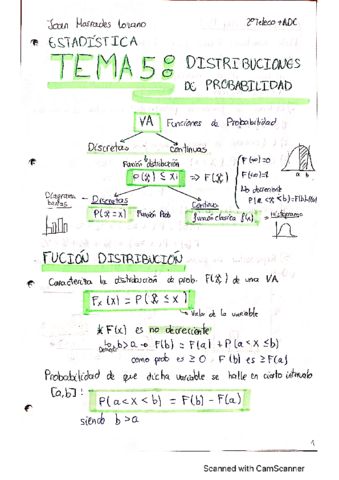 Joan Marrades Lozano
2º Teleco + ADE
ESTADÍSTICA
TEMA 5: DISTRIBUCIONES
DE PROBABILIDAD
VA
Funciones de Probabilidad
Discretas
continuas
Función distribución
P(ξ ≤ x) ⇒ F(x)
F(-∞)=0
F(∞)=1
No decreciente
P(a<x≤b)=F(b)-F(a)
a b
Diagrama
barras
Discretas
P(ξ = x)
Función Prob
Continuas
función densidad f(x)
Histograma
FUCIÓN DISTRIBUCIÓN
Caracteriza la distribución de prob. F(ξ) de una VA
Fx(x) = P(ξ ≤ x)
Valor de la variable
* F(x) es no decreciente
b>a → F(b) = F(a) + P(a < x ≤ b)
Demostr
como prob es ≥ 0 F(b) es ≥ F(a)
Probabilidad de que dicha variable se halle en cierto intervalo
[a,b] :
P(a < x < b) = F(b) - F(a)
siendo b > a
1
Scanned with CamScanner